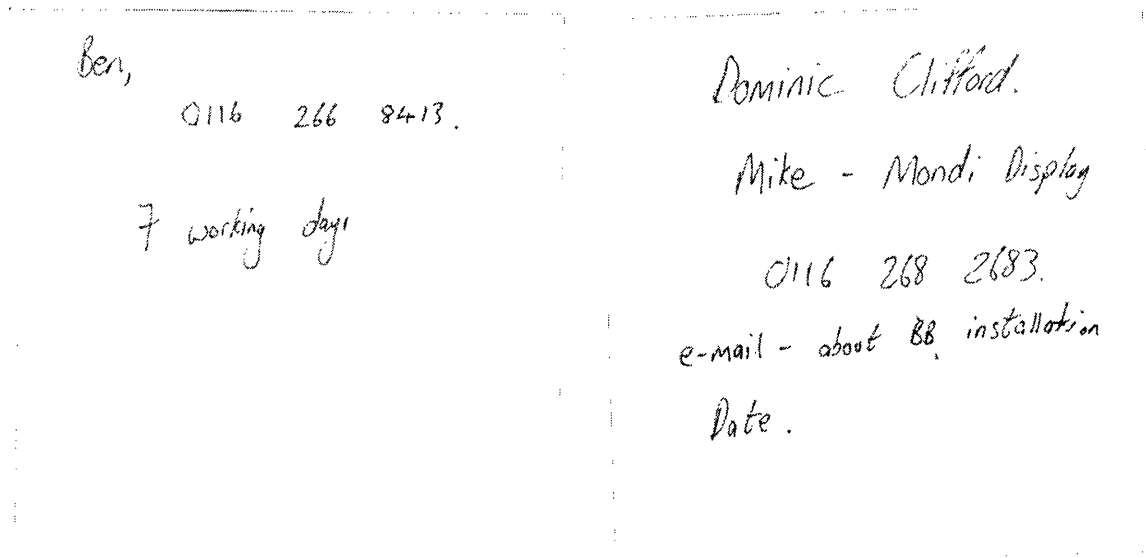 Ben,
0116 266 8413.
7 working days
Dominic Clifford.
Mike - Mondi Display
0116 268 2683.
e-mail - about BB installation
Date.